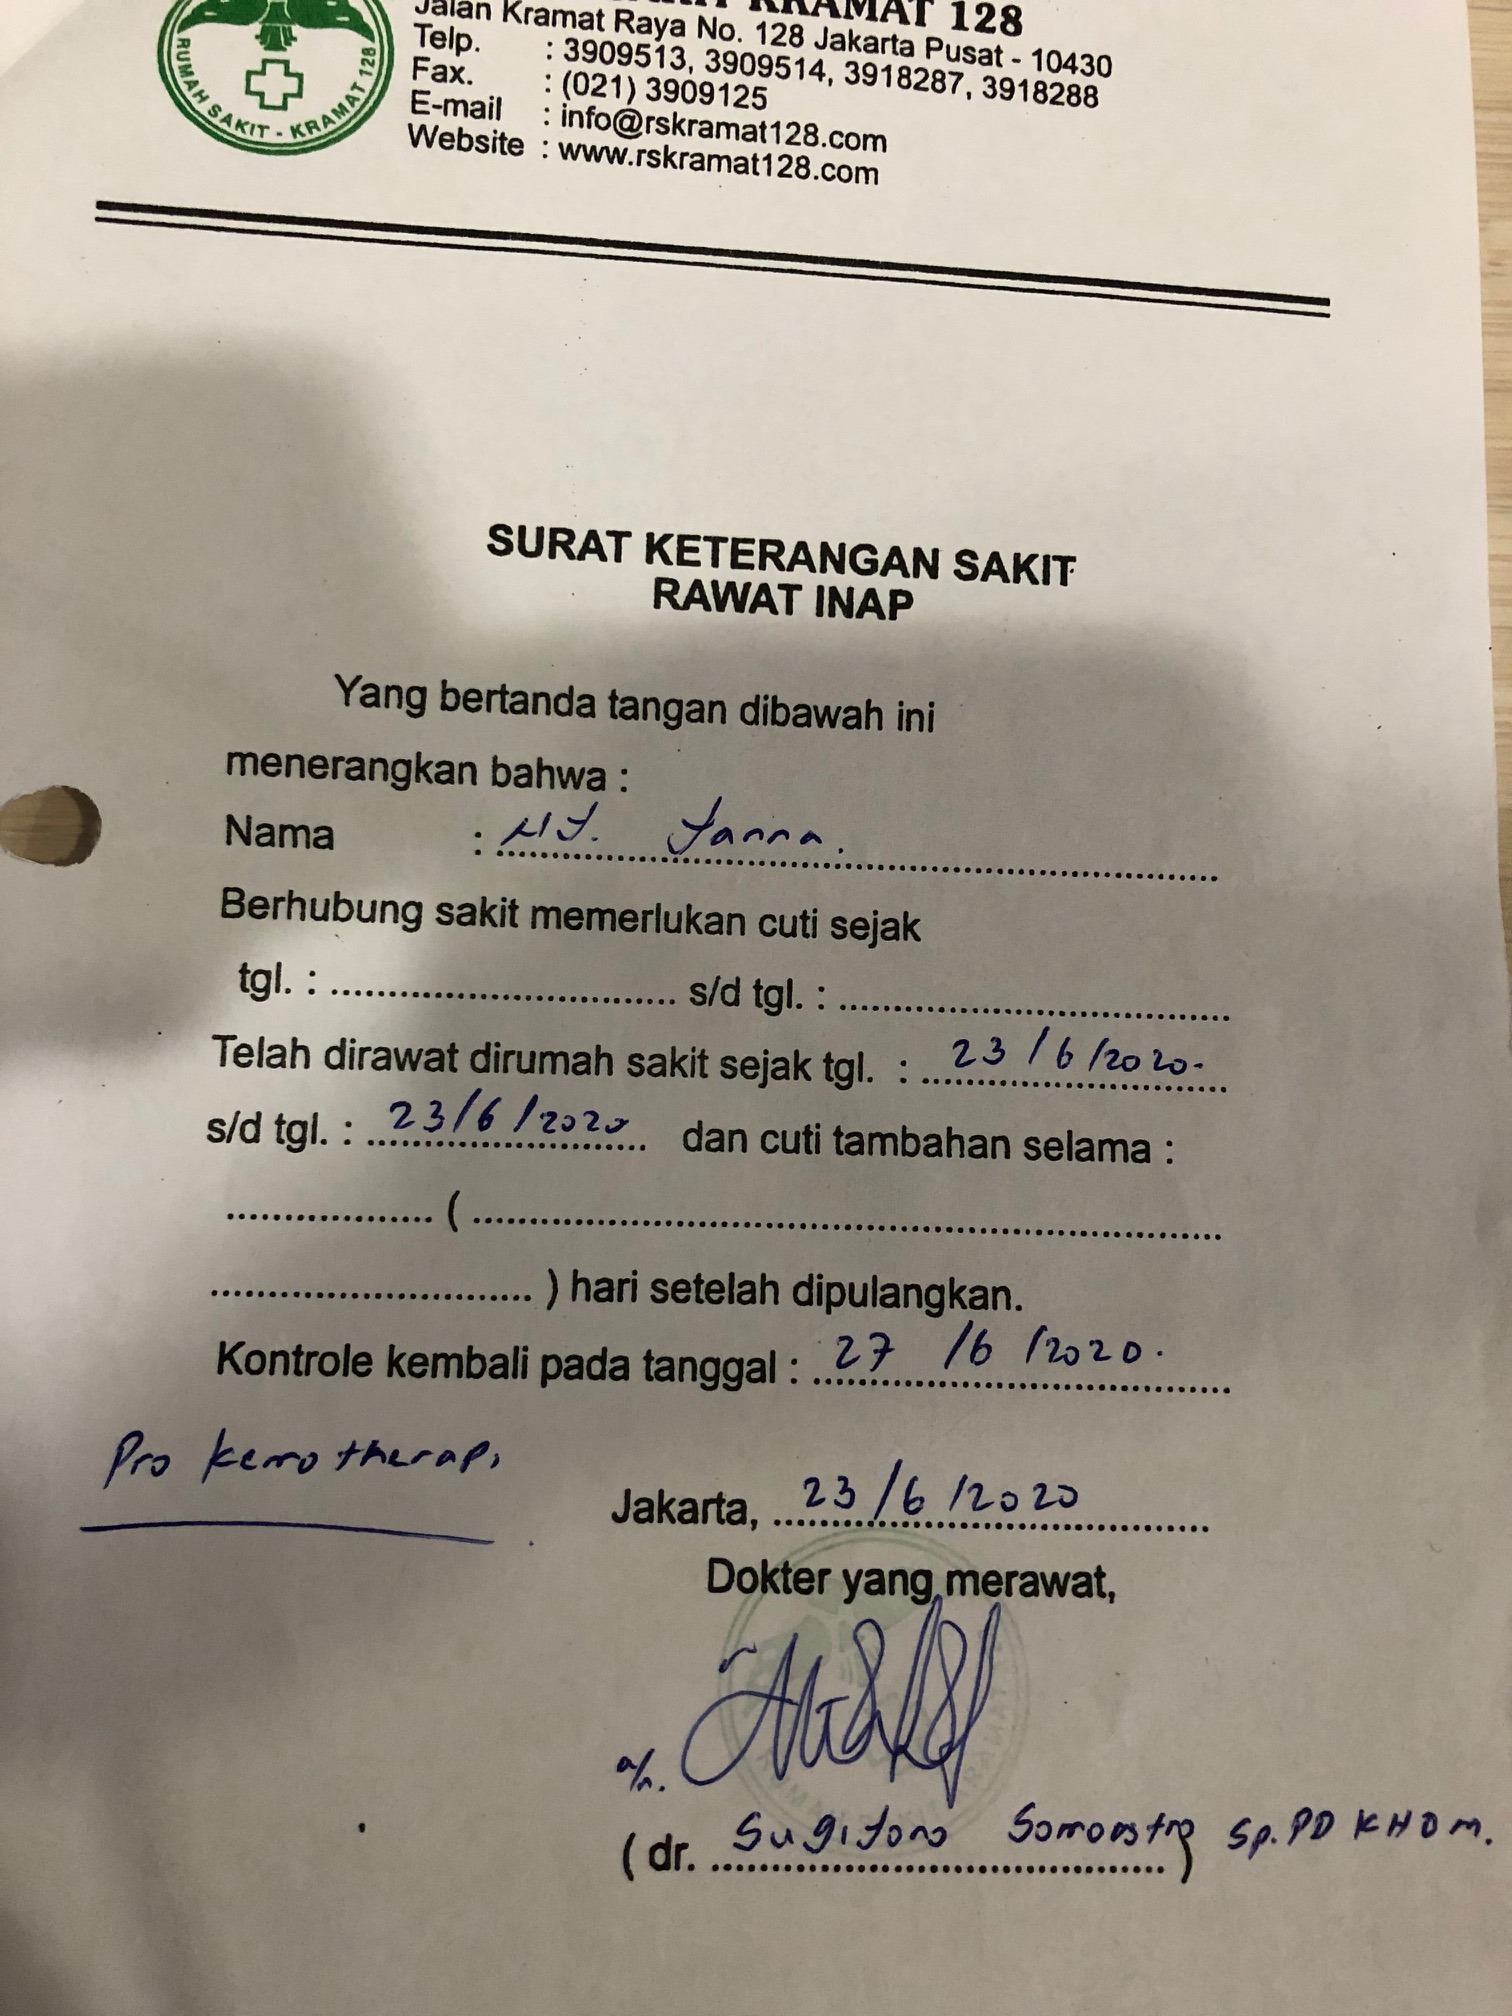 KRAMAT 128
Jalan Kramat Raya No. 128 Jakarta Pusat - 10430
Telp. : 3909513, 3909514, 3918287, 3918288
Fax. : (021) 3909125
E-mail : info@rskramat128.com
Website : www.rskramat128.com
RUMAH SAKIT - KRAMAT 128
SURAT KETERANGAN SAKIT
RAWAT INAP
Yang bertanda tangan dibawah ini
menerangkan bahwa :
Nama : NY. Yanna.
Berhubung sakit memerlukan cuti sejak
tgl. : .............................. s/d tgl. : ..............................
Telah dirawat dirumah sakit sejak tgl. : 23/6/2020.
s/d tgl. : 23/6/2020 dan cuti tambahan selama :
.................. ( ..............................
.............................. ) hari setelah dipulangkan.
Kontrole kembali pada tanggal : 27/6/2020.
Pro kemotherapi
Jakarta, 23/6/2020
Dokter yang merawat,
a/n.
( dr. Sugiyono Somoastro Sp.PD KHOM. )